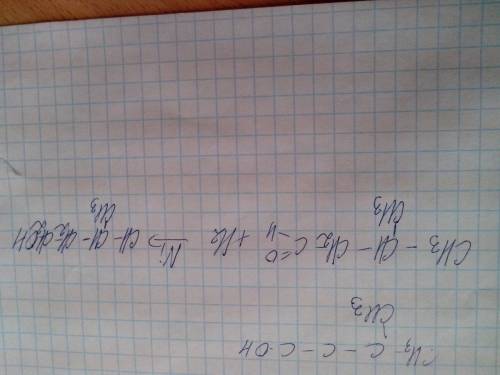 CH₃ C – C – C-OH
CH₃
CH₃ – CH – CH₂ – C=O + H₂ Ni → CH – CH – CH₂-CH₂OH
H
CH₃ CH₃